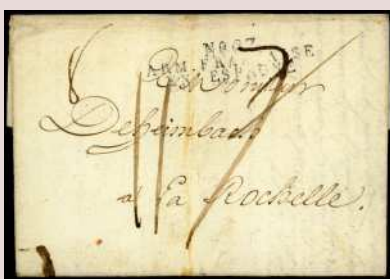 8
No 07
ARM. FRANÇAISE
EN ESPAGNE
Monsieur
Deheimbach
117
a La Rochelle.